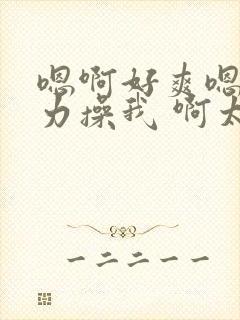 嗯啊好爽嗯
力操我 啊太
一二二一一